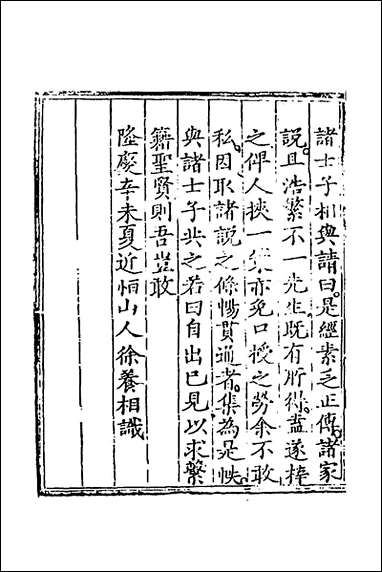 諸士子相與請曰是經素乏正傳諸家
説且浩繁不一先生既有所得盍遂梓
之俾人挾一集亦免口授之勞余不敢
私因取諸説之條暢貫通者集為是帙
與諸士子共之若曰自出已見以求槩
籍聖賢則吾豈敢
隆慶辛未夏近恒山人徐養相識